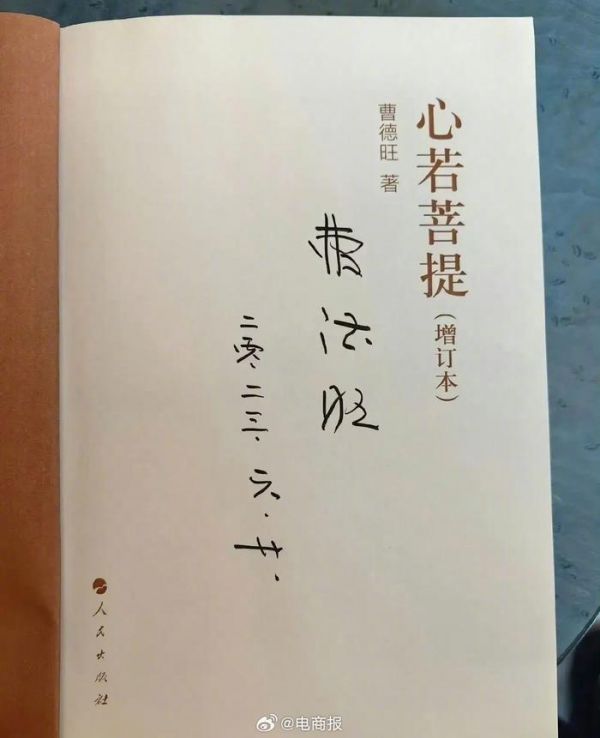 心若菩提(增订本)
曹德旺 著
曹德旺
二零二三.六.廿.
人民出版社
@电商报